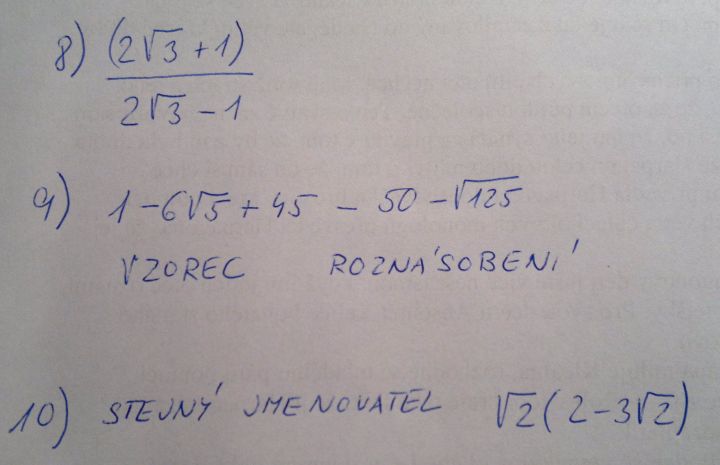 8) (2√3 + 1)
2√3 - 1
9) 1 - 6√5 + 45 - 50 - √125
VZOREC ROZNÁSOBENÍ
10) STEJNÝ JMENOVATEL √2 (2 - 3√2)